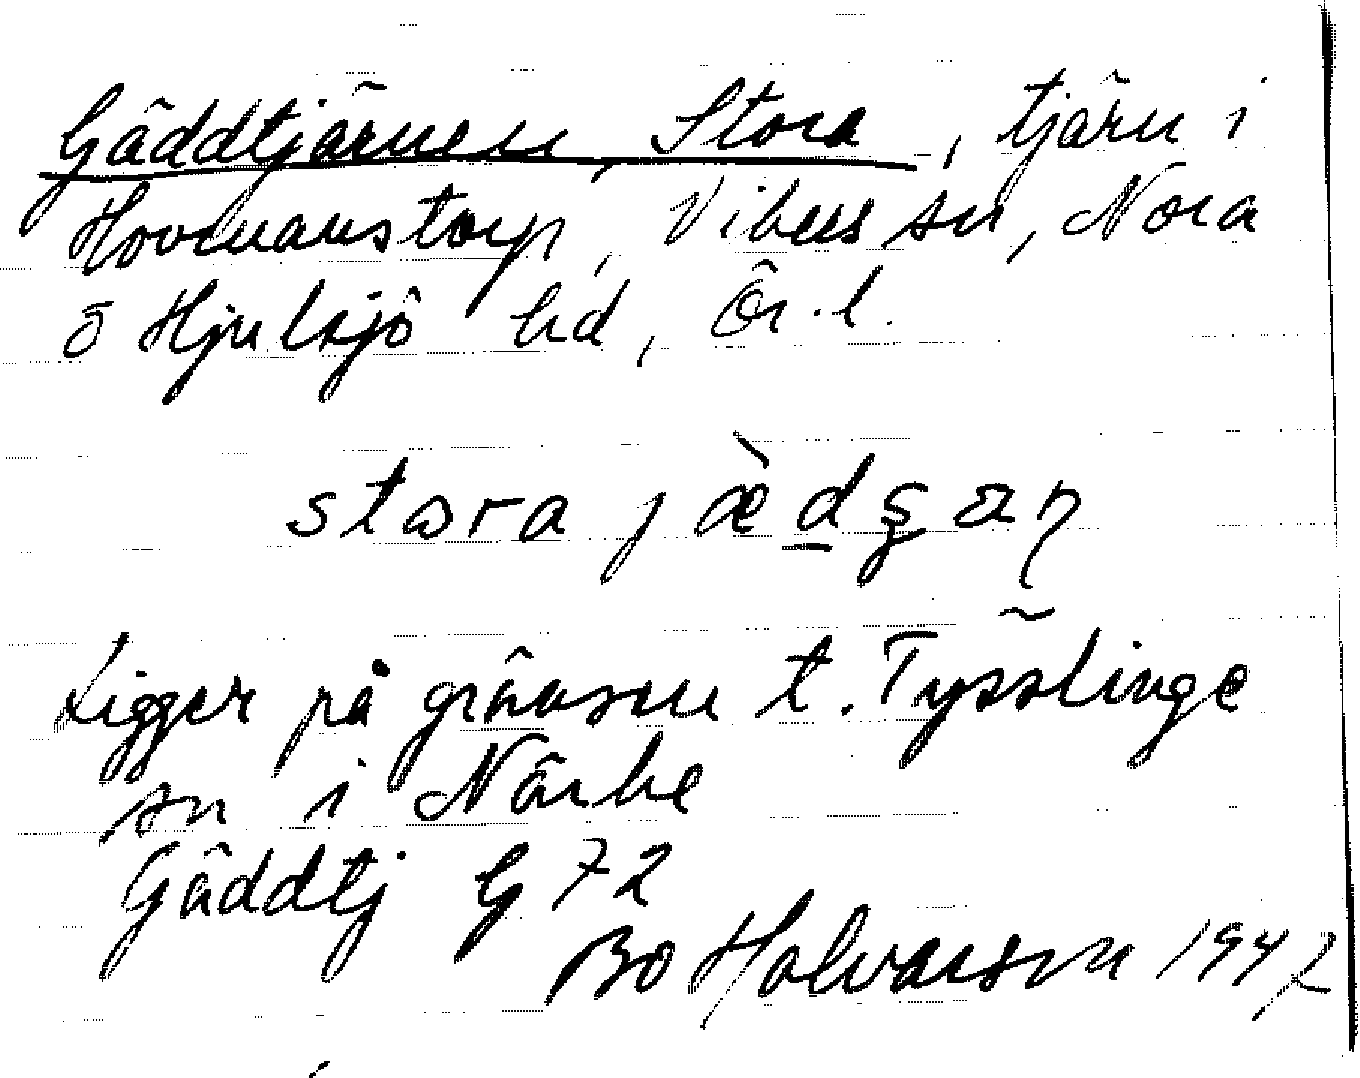 Gäddtjärnen, Stora, tjärn i
Hovmanstorp, Vikers sn, Nora
o Hjulsjö hd, Ör. l.
stora jæ̀dʂan
Ligger på gränsen t. Tysslinge
sn i Närke
Gäddtj G 72
Bo Halvarson 1947